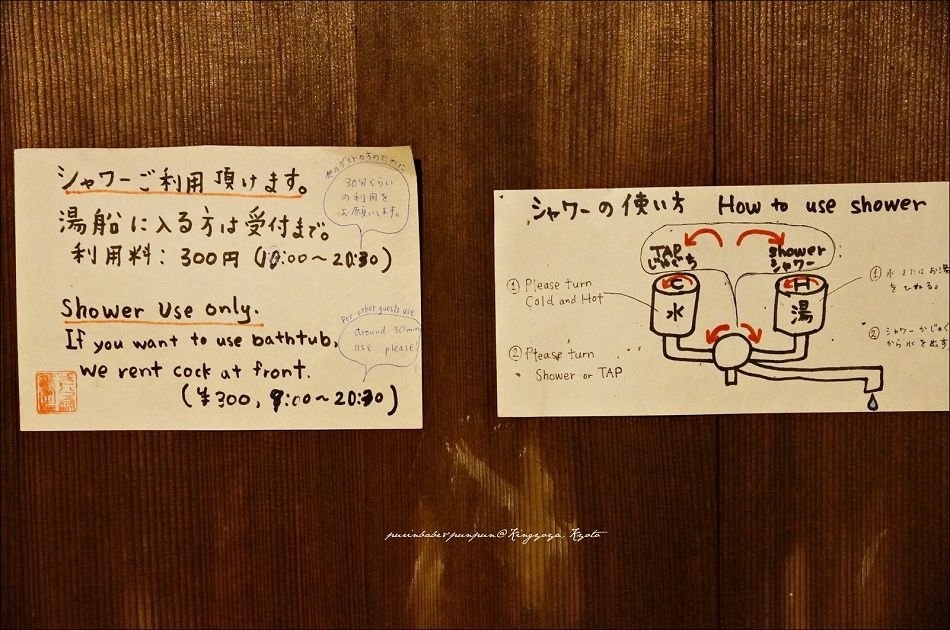 シャワーご利用頂けます。
湯船に入る方は受付まで。
利用料: 300円 (10:00～20:30)
他のゲストの方のために
30分くらい
の利用を
お願いします。
Shower Use only.
If you want to use bathtub,
we rent cock at front.
(¥300, 9:00～20:30)
For other guests use
around 30min
use please
シャワーの使い方 How to use shower
TAP
じゃぐち
shower
シャワー
C
水
H
湯
① Please turn
Cold and Hot
② Please turn
Shower or TAP
① 水またはお湯
をひねる。
② シャワーかじゃぐ
から水を出す
purinbabe&punpun@Kingyoya, Kyoto